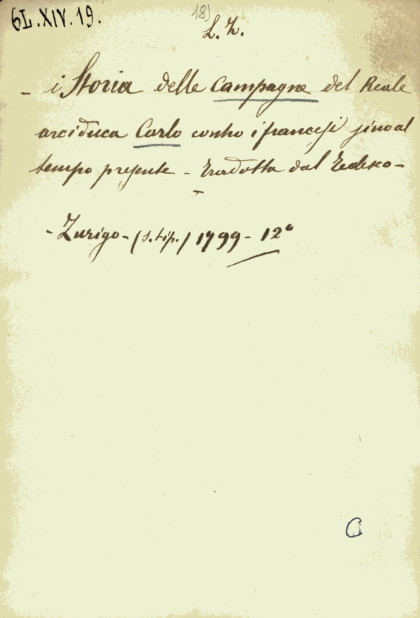 6L.XIV.19.
18)
L. Z.
- i Storia delle Campagne del Reale
arciduca Carlo contro i francesi sino al
tempo presente - Tradotta dal Tedesco -
- Zurigo - (s. tip.) 1799 - 12°
C